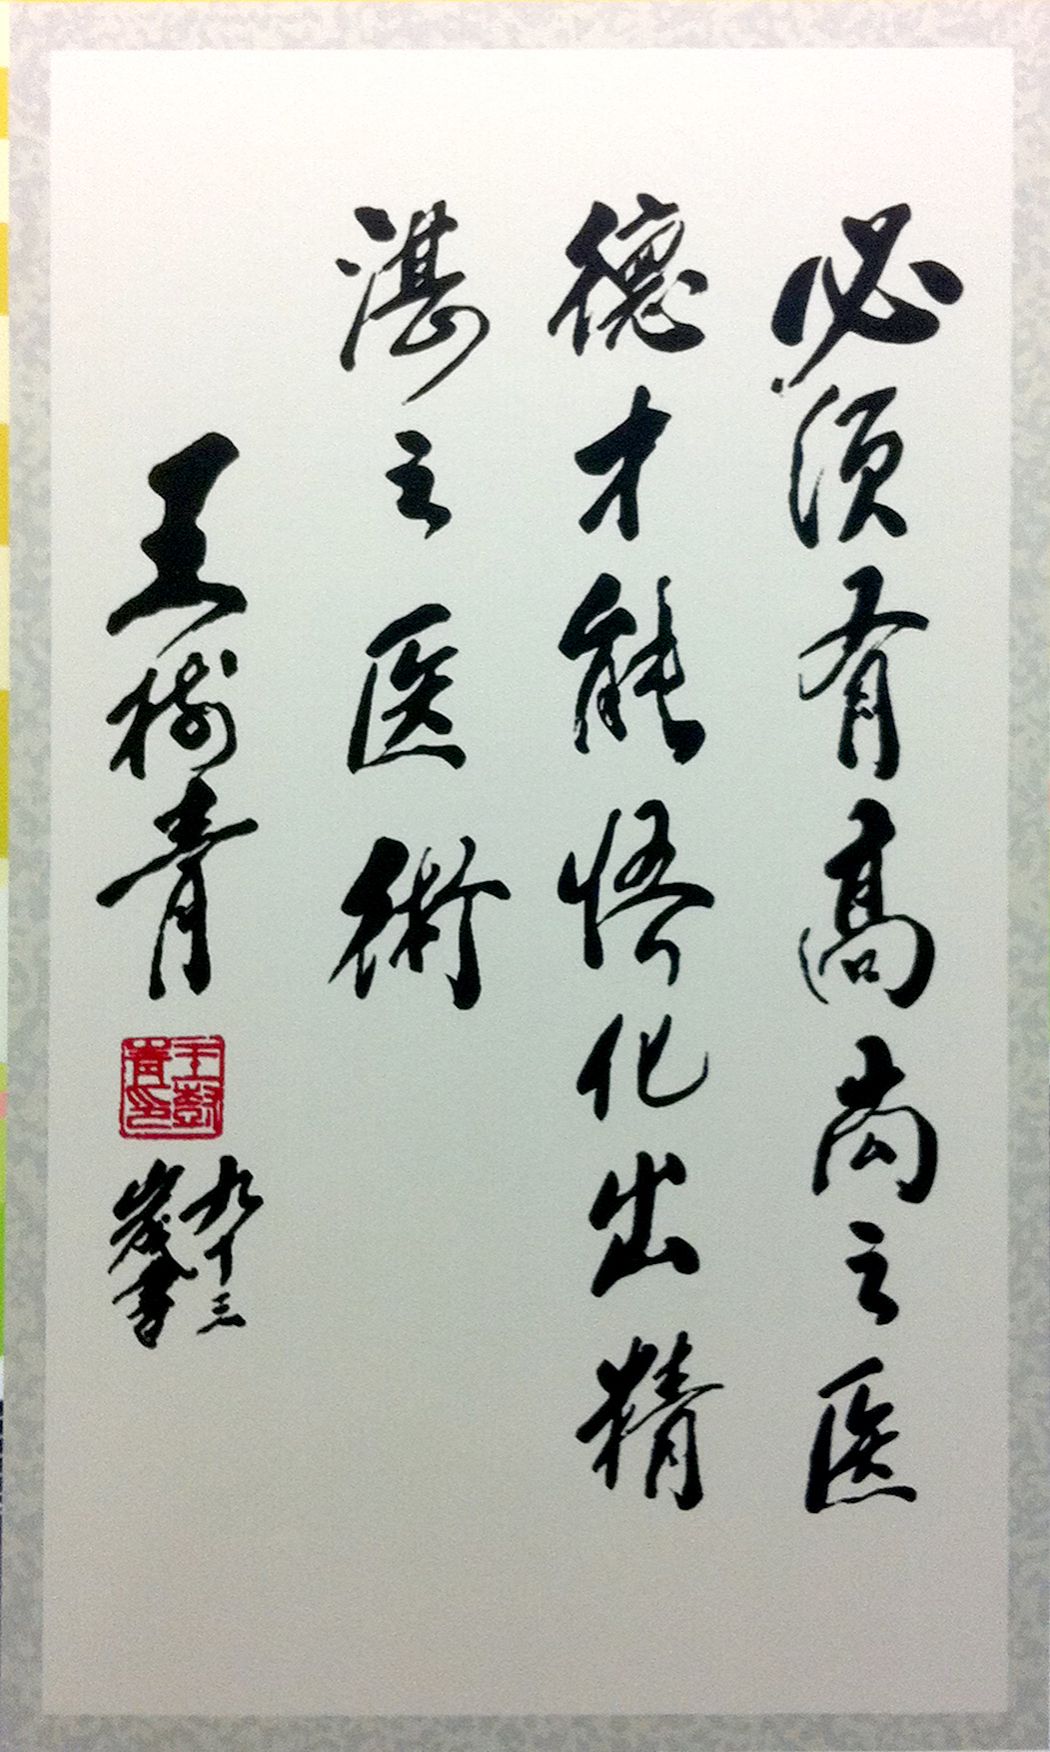 必须有高尚之医
德才能悟化出精
湛之医術
王樹青
王樹青印
九十三
歲書